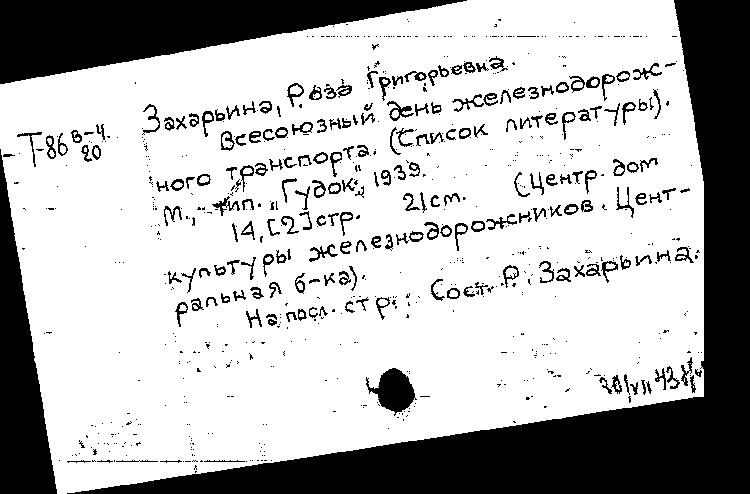 Захарьина, Роза Григорьевна.
Т-86 В-4
20
Всесоюзный день железнодорож-
ного транспорта. (Список литературы).
М., тип. „Гудок", 1939.
14, [2] стр. 21 см. (Центр. дом
культуры железнодорожников. Цент-
ральная б-ка).
На посл. стр.: Сост. Р. Захарьина.